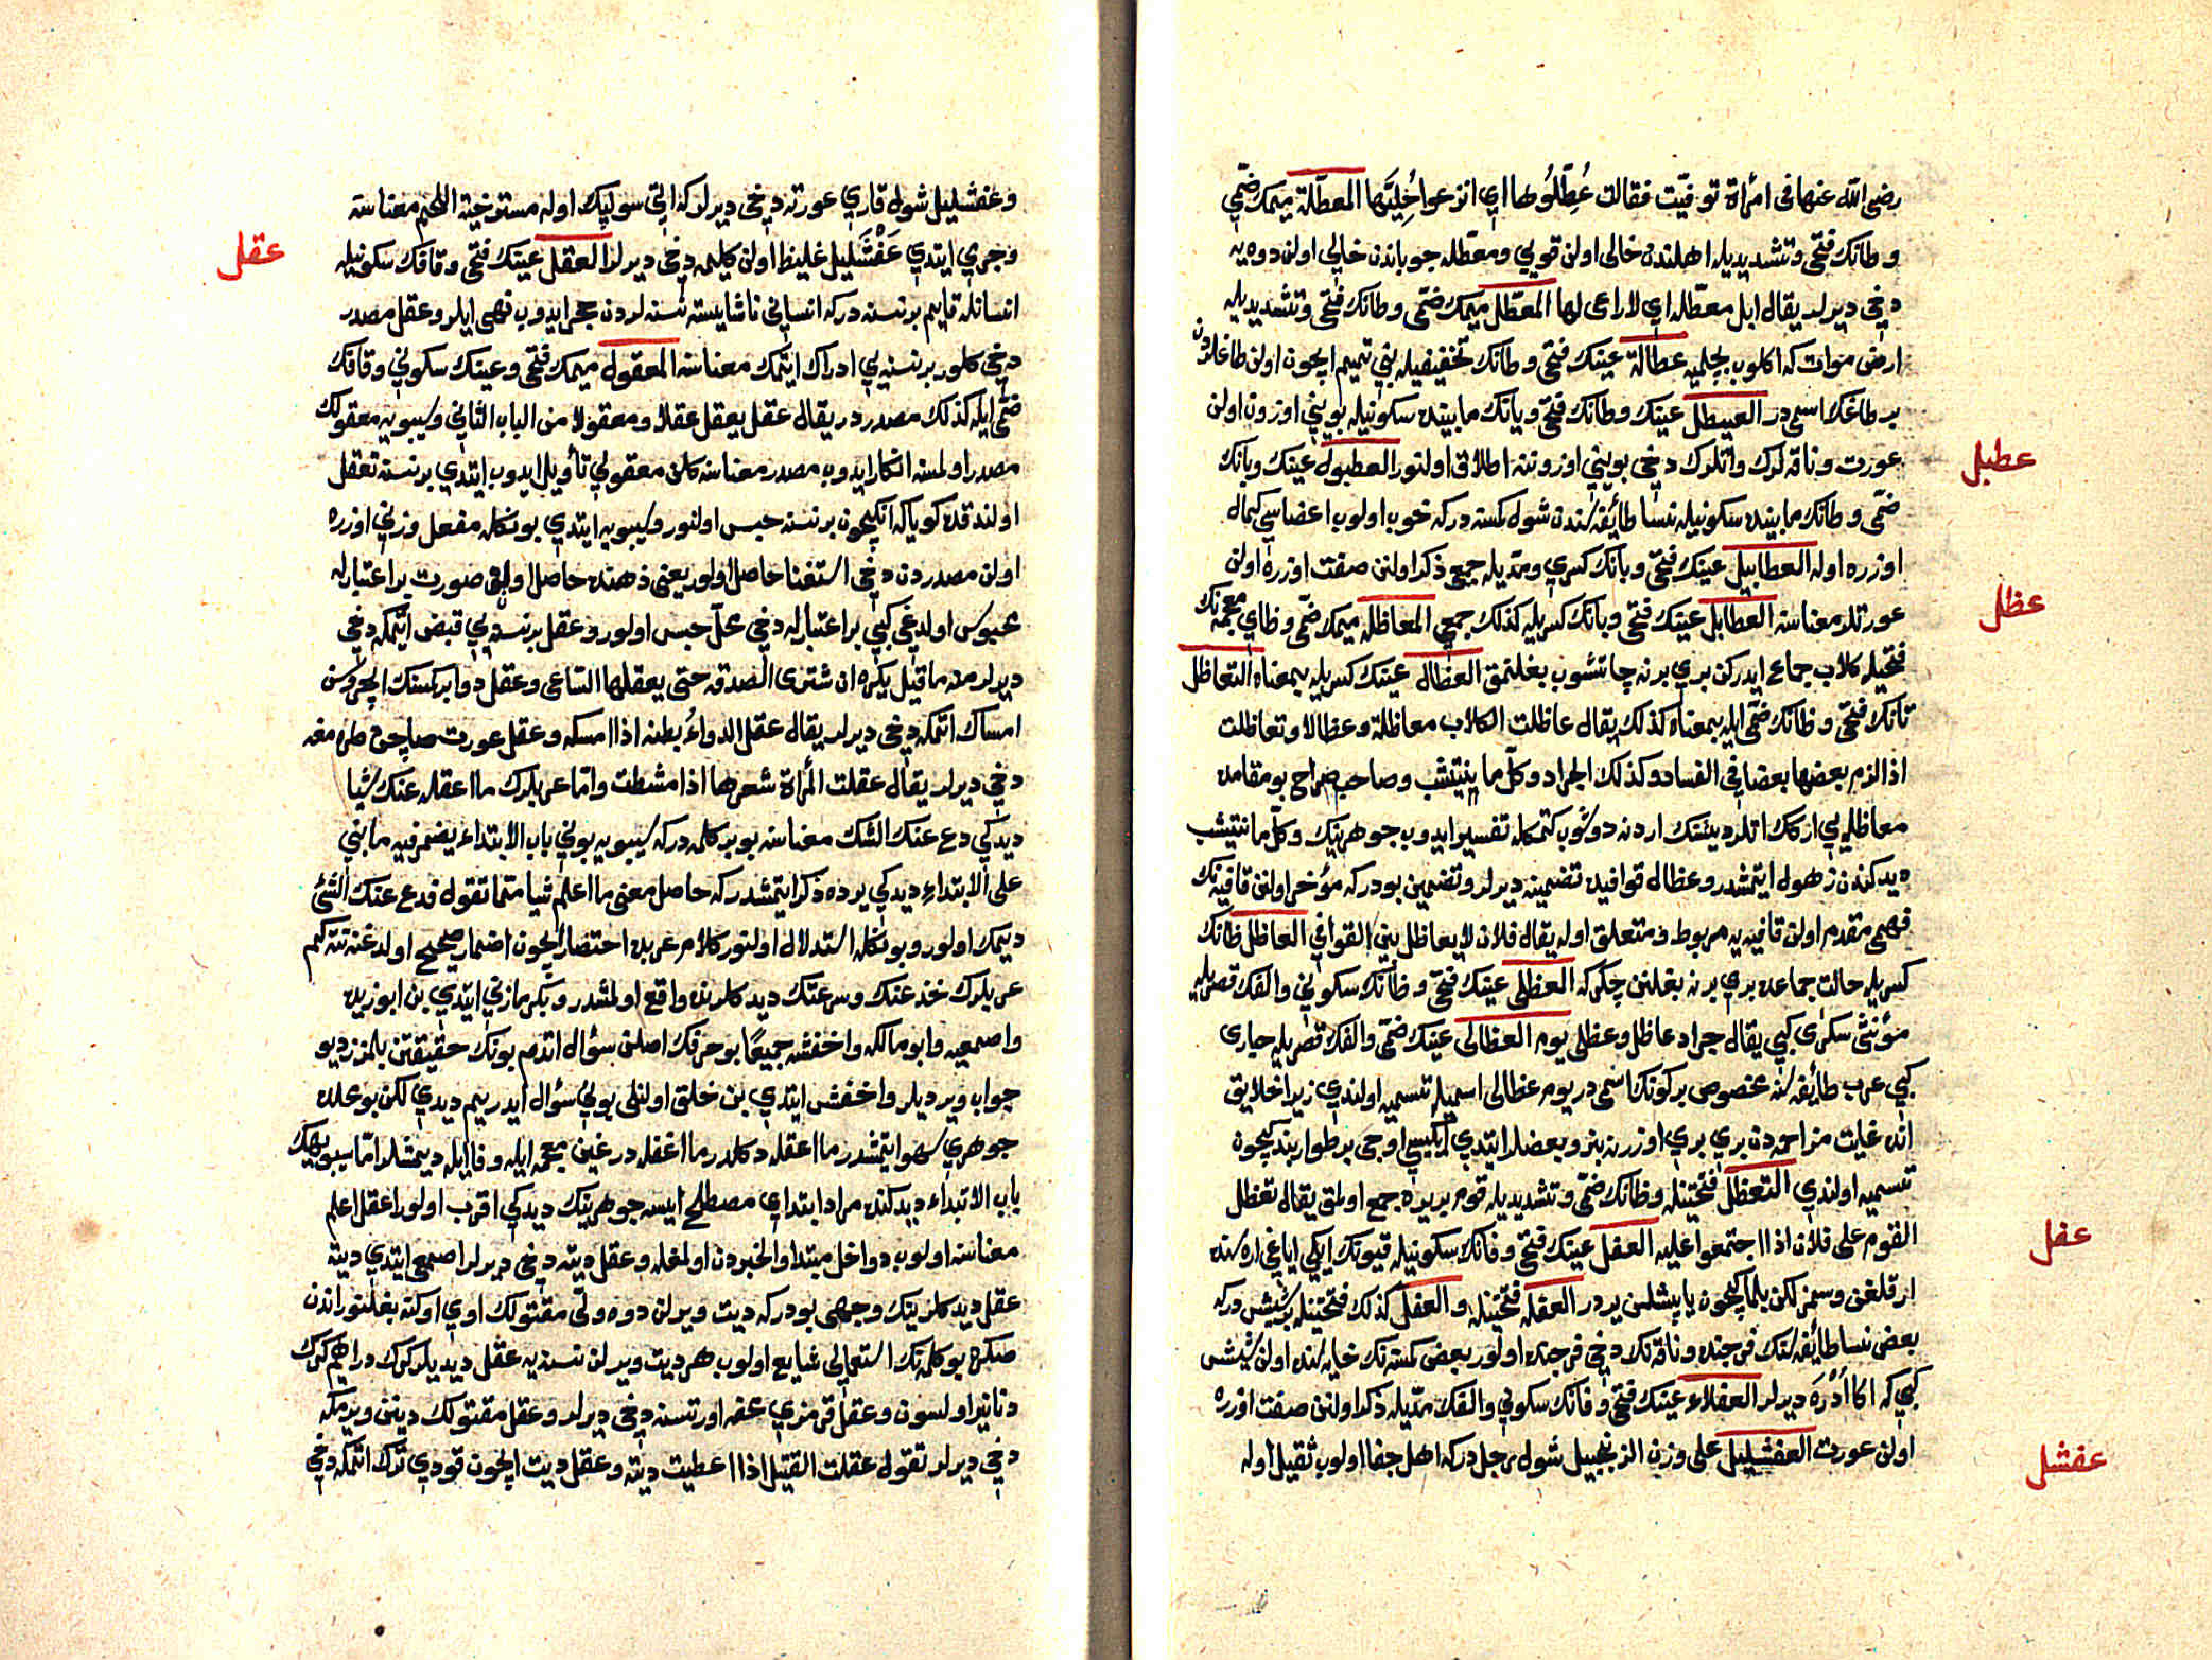 رضى الله عنها فى امرأة توفيت فقالت عُطِّلُوها اي انزعوا حُلِيَّها المعطّلة ميمك ضمّي
وطانك فتحى وتشديديله اهلندن خالى اولن قويى ومعطّله جوباندن خالى اولن دوه يه
دخى ديرلر يقال ابل معطّله اي لاراعى لها المعطّل ميمك ضمّى وطانك فتحى وتشديديله
ارض موات كه اكلوب بچلميه عطالة عينك فتحى وطانك تخفيفيله بني تميم ايچون اولن طاغلردن
بر طاغك اسمى در العيطل عينك وطانك فتحى ويانك مابينده سكونيله بويني اوزون اولن
عورت وناقه لرك واتلرك دخى بويني اوزوننه اطلاق اولنور العطبول عينك وبانك
ضمّى وطانك مابينده سكونيله نسا طائفه سندن شول كمسنه دركه خوب اولوب اعضاسي كمال
اوزره اوله العطابيل عينك فتحى وبانك كسري ومدّيله جمعى ذكر اولنن صفت اوزره اولن
عورتلر معناسنه العطابل عينك فتحى وبانك كسريله كذلك جمعى المعاظله ميمك ضمّى وظاي معجمه نك
فتحيله كلاب جماع ايدركن بري برنه چاتشوب بغلنمق العظال عينك كسريله بمعناه التعاظل
تانك فتحى وظانك ضمّى ايله بمعناه كذلك يقال عاظلت الكلاب معاظلة وعظالا وتعاظلت
اذا لزم بعضها بعضا فى الفساد وكذلك الجراد وكلّ ما ينتشب وصاحب صراح بو مقامده
معاظله يى اركك اتلر ديشنك اردنه دوشوب كتمكله تفسير ايدوب جوهرينك وكلّ ما ينتشب
ديدكندن ذهول ايتمشدر وعظال قوافيده تضمينه ديرلر وتضمين بودركه مؤخر اولنن قافيه نك
فهمى مقدم اولن قافيه يه مربوط ومتعلق اوله يقال فلان لا يعاظل بين القوافي العاظل ظانك
كسريله حالت جماعده بري برنه بغلنن چكركه العظلى عينك فتحى وظانك سكوني والفك قصريله
مؤنثى سكرى كبي يقال جراد عاظل وعظلى يوم العظالى عينك ضمّى والفك قصريله حبارى
كبي عرب طائفه سنه مخصوص بر كونك اسمى در يوم عظالى اسميله تسميه اولندي زيرا خلايق
انده غايت مزاحمه دن بري بري اوزرنه بنوب بعضلر ايتدي ايكيسى اوچى بر طوار بندكيچون
تسميه اولندي التعظّل فتحتينله وظانك ضمّى وتشديديله قوم بر يره جمع اولمق يقال تعظّل
القوم على فلان اذا اجتمعوا عليه العفل عينك فتحى وفانك سكونيله قيونك ايكى اياغى اره سنده
ارقلغن وسمزلكن بلمك ايچون ياپشلن يردر العفله فتحتينله والعفل كذلك فتحتينله بر شيش دركه
بعض نسا طائفه سنك فرجنده وناقه نك دخى فرجنده اولور بعض كمسنه نك خايه سنده اولن شيش
كبي كه اكا أدْرَه ديرلر العفلاء عينك فتحى وفانك سكوني والفك مدّيله ذكر اولنن صفت اوزره
اولن عورت العفشليل على وزن الزنجبيل شول رجل دركه اهل جفا اولوب ثقيل اوله
عطبل
عظل
عفل
عفشل
وعفشليل شول قاري عورته دخى ديرلر كه اتى سولپك اوله مسترخية اللحم معناسنه
وجرمي ايتدي عَفْشَليل غليظ اولن كليمه دخى ديرلر العقل عينك فتحى وقافك سكونيله
انسانله قايم بر نسنه دركه انسانى ناشايسته نسنه لردن حجر ايدوب نهى ايلر وعقل مصدر
دخى كلور بر نسنه يى ادراك ايتمك معناسنه المعقول ميمك فتحى وعينك سكوني وقافك
ضمّى ايله كذلك مصدر در يقال عقل يعقل عقلا ومعقولا من الباب الثانى وسيبويه معقولك
مصدر اولمسنه انكار ايدوب مصدر معناسنه كلن معقولي تأويل ايدوب ايتدي بر نسنه تعقل
اولندقده كوياكه انكيچون بر نسنه حبس اولنور وسيبويه ايتدي بونكله مفعل وزني اوزره
اولن مصدردن دخى استغنا حاصل اولور يعنى ذهنده حاصل اولن صورت بر اعتبارله
محبوس اولدغى كبي بر اعتبارله دخى محل حبس اولور وعقل بر نسنه يى قبض ايتمكه دخى
ديرلر منه ما قيل يكره ان تشترى الصدقه حتى يعقلها الساعى وعقل دوا بر كمسنك ايچروسن
امساك اتمكه دخى ديرلر يقال عقل الدواءُ بطنه اذا امسكه وعقل عورت صاچن طرامغه
دخى ديرلر يقال عقلت المرأة شعرها اذا مشطت وامّا عربلرك ما اعقله عنك شيا
ديدكي دع عنك الشك معناسنه بو بر كلمه دركه سيبويه بوني باب الابتداء يضمر فيه ما بني
على الابتداء ديدكي يرده ذكر ايتمشدركه حاصل معنى ما اعلم شيا مما تقول فدع عنك الشك
ديمك اولور وبونكله استدلال اولنور كلام عربده اختصار ايچون اضمار صحيح اولدغنه تته كم
عربلرك خذ عنك وسر عنك ديدكلرنده واقع اولمشدر وبكر مازني ايتدي بن ابو زيده
واصمعيه وابو مالكه واخفشه جميعًا بو حرفك اصلن سؤال اتدم بونك حقيقتن بلمزز ديو
جواب ويرديلر واخفش ايتدي بن خلق اولنلى بوني سؤال ايدريم ديدي لكن بو محلده
جوهري سهو ايتمشدر ما اعقله دكلدر ما اغفله در غين معجمه ايله وفا ايله ديمشلر امّا سيبويهك
باب الابتداء ديدكنده مراد ابتداي مصطلح ايسه جوهرينك ديدكي اقرب اولور اعقل اعلم
معناسنه اولوب دواخل مبتدا والخبردن اولمغله وعقل ديته دخى ديرلر اصمعى ايتدي ديته
عقل ديدكلرينك وجهى بودركه ديت ويرلن دوه ولىّ مقتولك اوي اوكنه بغلنور اندن
صكره بو كلمه نك استعمالى شايع اولوب هر ديت ويرلن نسنه يه عقل ديديلر كرك دراهم كرك
دنانير اولسون وعقل قرمزي محفه اورتسنه دخى ديرلر وعقل مقتولك ديتن ويرمكه
دخى ديرلر تقول عقلت القتيل اذا اعطيت ديته وعقل ديت ايچون قودي ترك اتمكه دخى
عقل